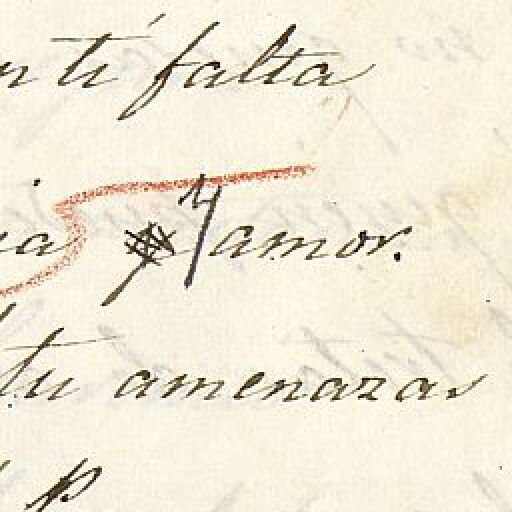 ti falta
y amor.
tu amenazas
p